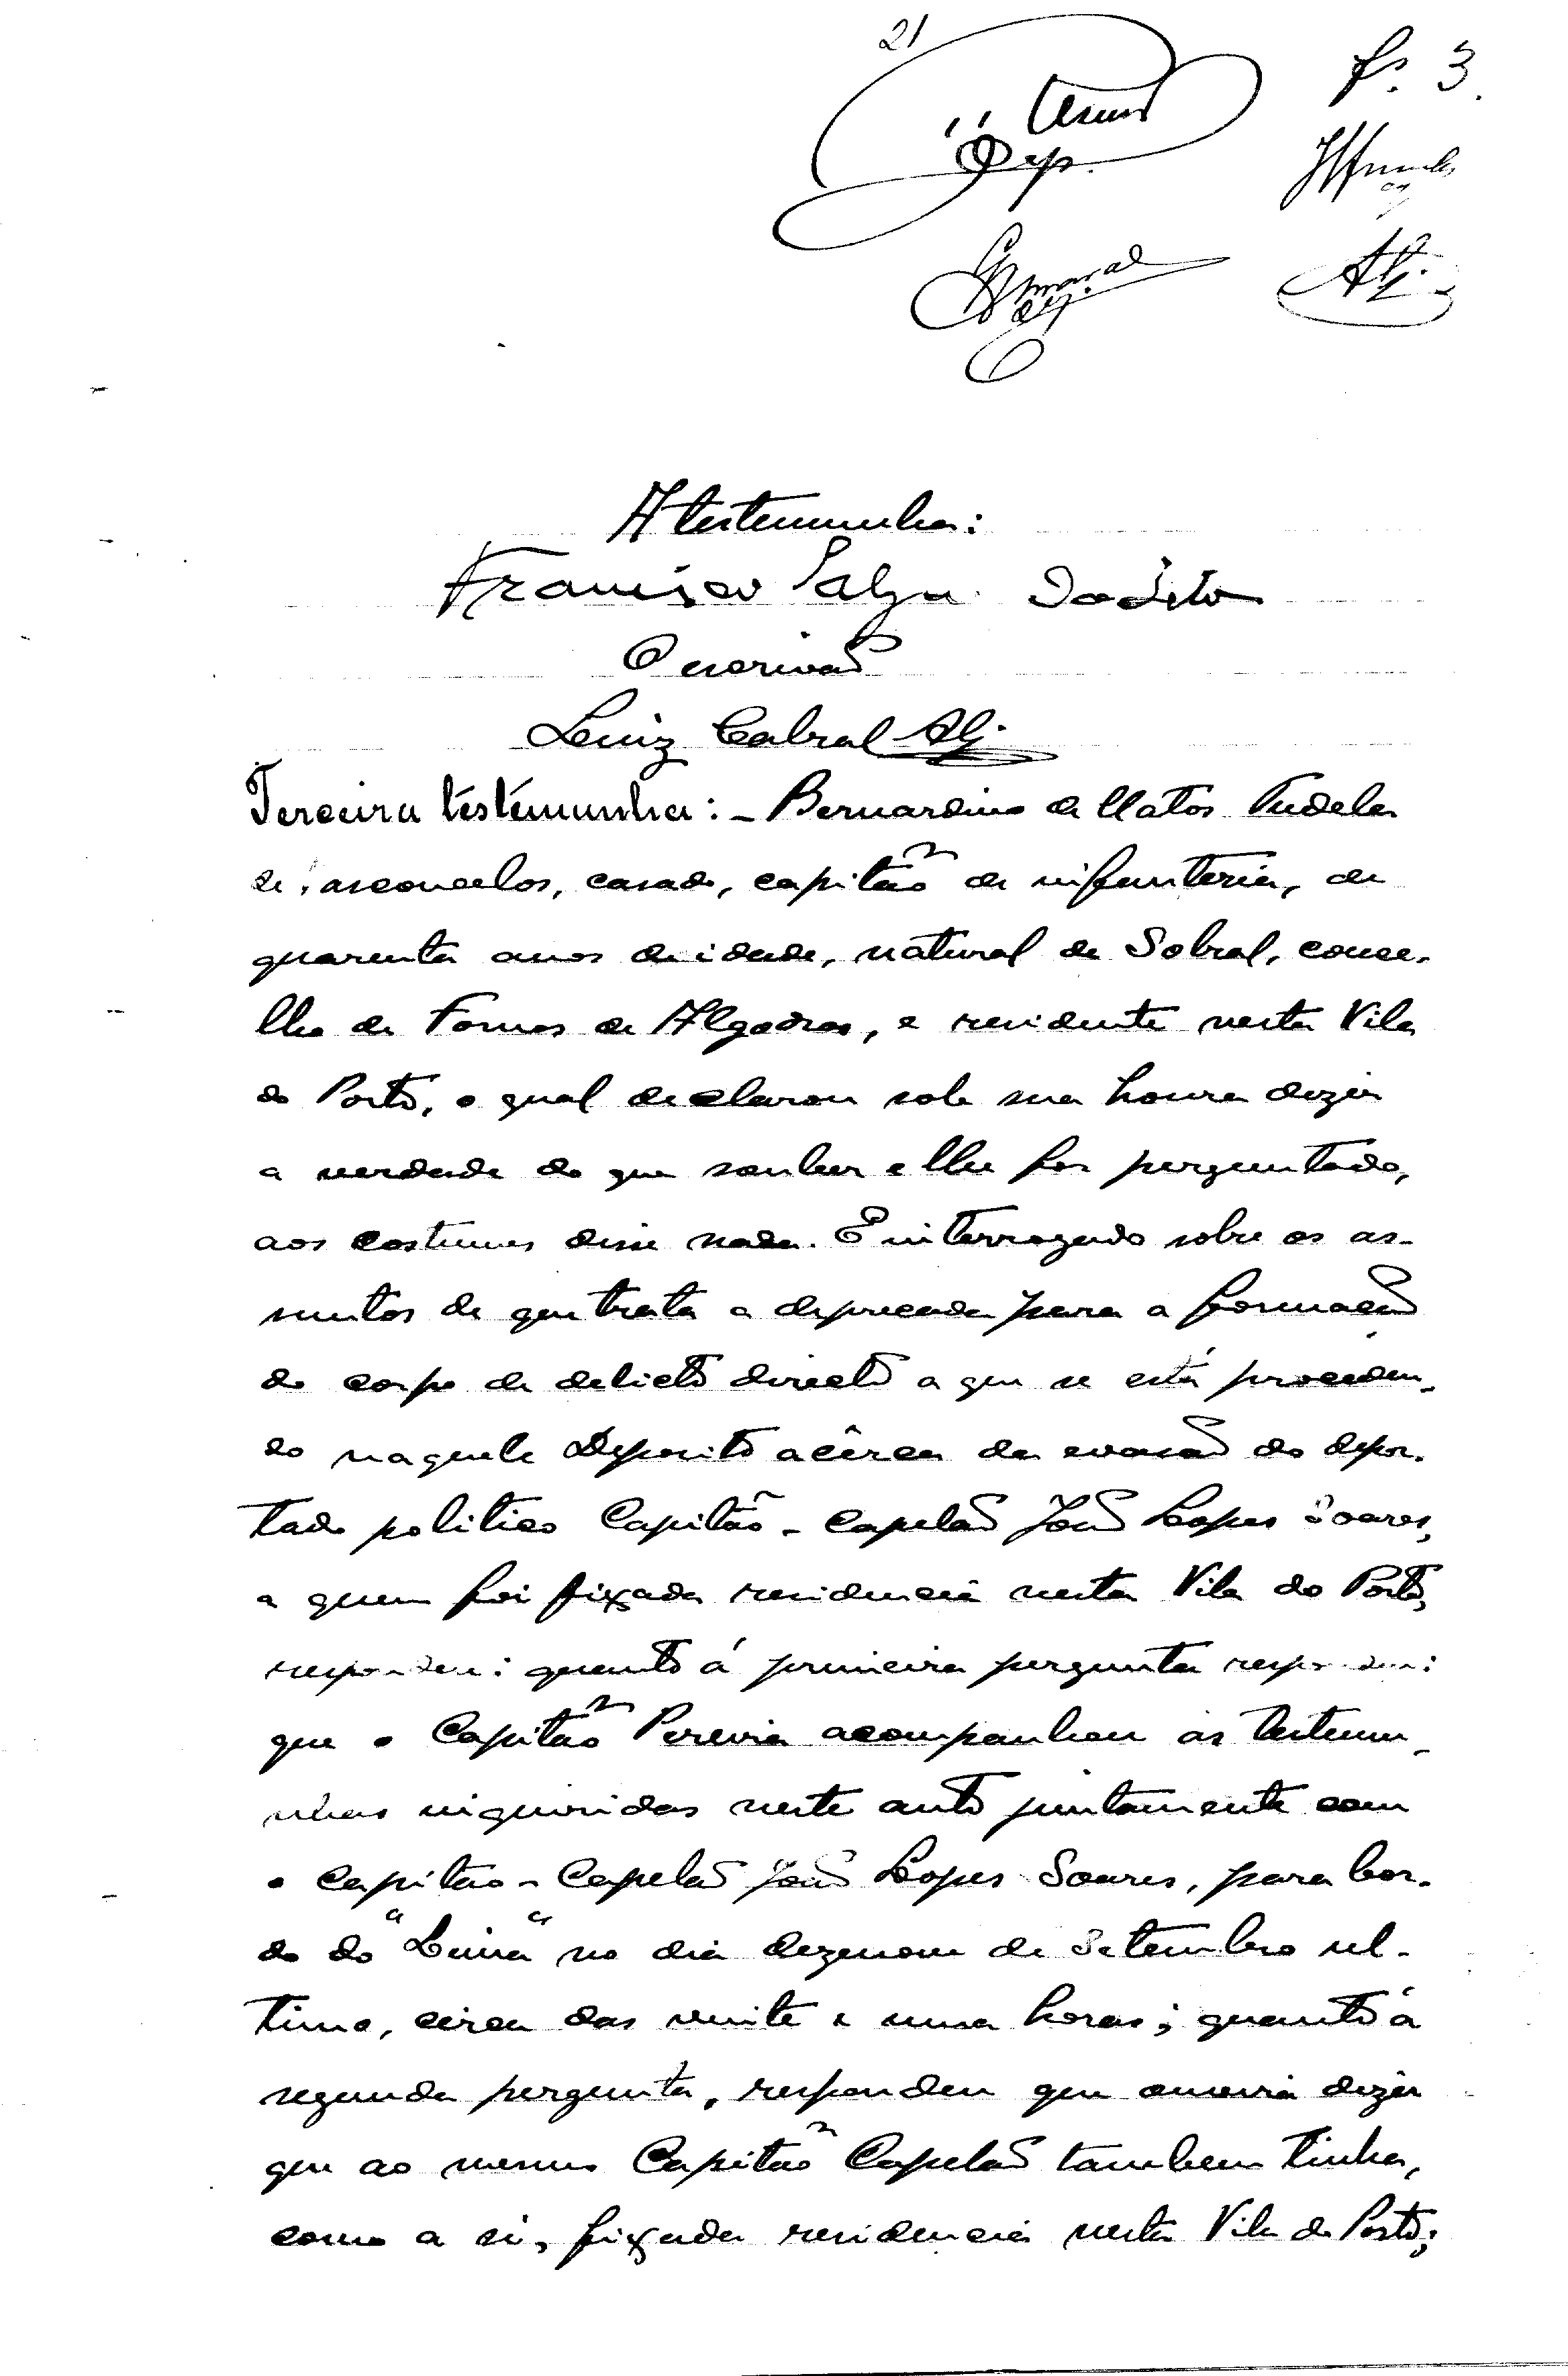 21
fs. 3.
Dep.
Amaral
Alf.
A testemunha:
Francisco
O escrivão
Luiz Cabral Alf.
Terceira testemunha: - Bernardino de Matos Tudela
de Vasconcelos, casado, capitão de infanteria, de
quarenta anos de idade, natural de Sobral, conce-
lho de Fornos de Algodres, e residente nesta Vila
do Porto, o qual declarou sob sua honra dizer
a verdade do que souber e lhe for perguntado,
aos costumes disse nada. E interrogado sobre os as-
suntos de que trata a deprecada para a formação
do corpo de delicto directo a que se está proceden-
do naquele Deposito acêrca da evasão do depor-
tado politico Capitão-Capelão João Lopes Soares,
a quem foi fixada residencia nesta Vila do Porto,
respondeu: quanto á primeira pergunta respondeu:
que o Capitão Pereira acompanhou as testemu-
nhas inquiridas neste auto juntamente com
o Capitão-Capelão João Lopes Soares, para bor-
do do "Lima" no dia dezenove de Setembro ul-
timo, cerca das vinte e uma horas; quanto á
segunda pergunta, respondeu que ouvira dizer
que ao mesmo Capitão Capelão tambem tinha,
como a si, fixada residencia nesta Vila do Porto;